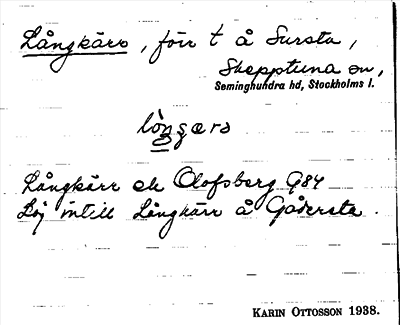 Långkärr, förr t å Sursta,
Skepptuna sn,
Seminghundra hd, Stockholms l.
lòŋgærs
Långkärr el. Olofsberg G84
Låg intill Långkärr å Gåversta.
KARIN OTTOSSON 1938.